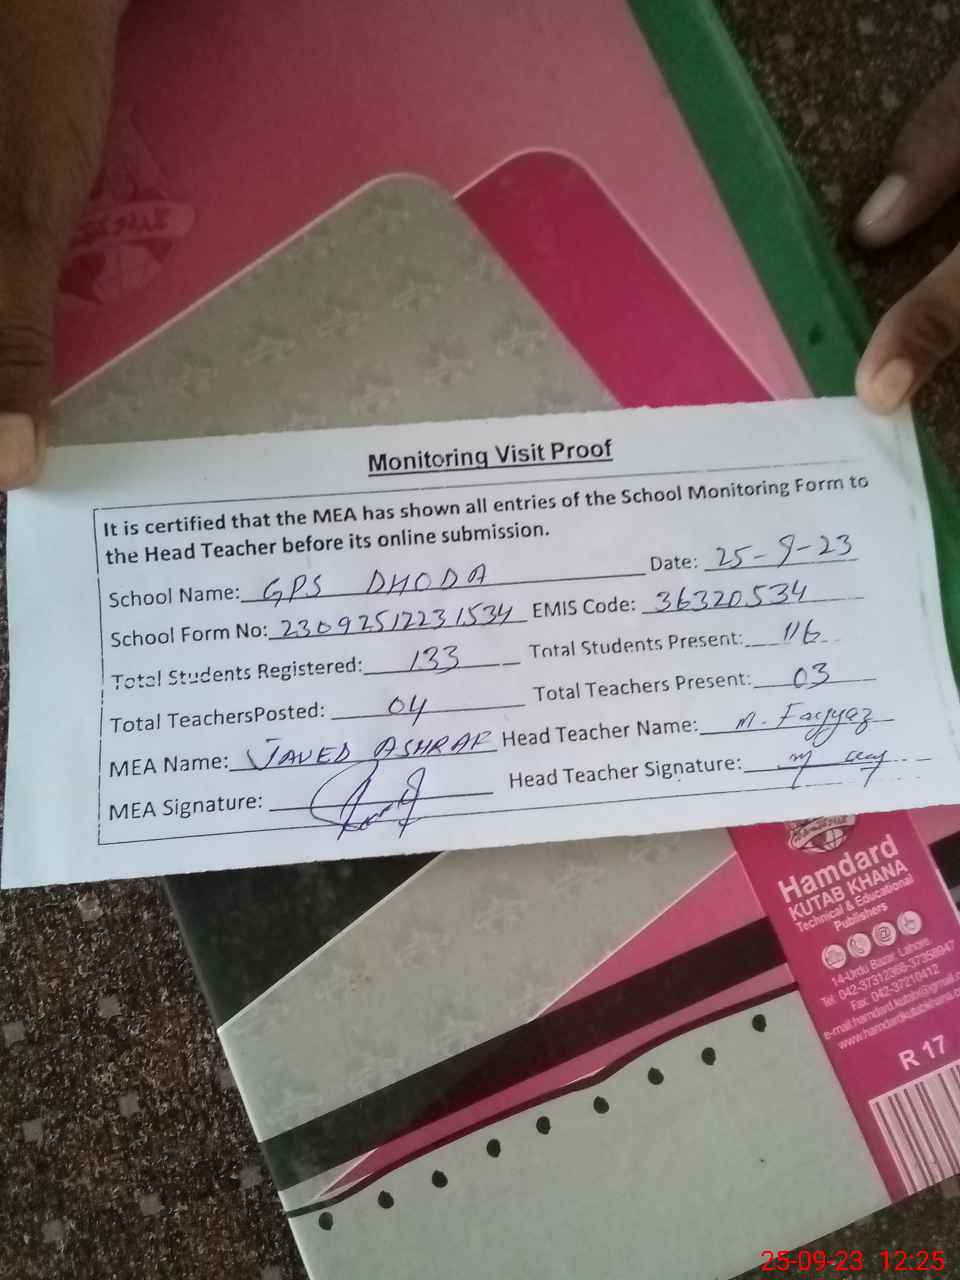 Monitoring Visit Proof
It is certified that the MEA has shown all entries of the School Monitoring Form to
the Head Teacher before its online submission.
School Name: GPS DHODA Date: 25-9-23
School Form No: 23092512231534 EMIS Code: 36320534
Total Students Registered: 133 Total Students Present: 116
Total TeachersPosted: 04 Total Teachers Present: 03
MEA Name: JAVED ASHRAF Head Teacher Name: M. Fayyaz
MEA Signature: Head Teacher Signature:
Hamdard
KUTAB KHANA
Technical & Educational
Publishers
14-Urdu Bazar, Lahore
Tel: 042-37312366-37358947
Fax: 042-37210412
R 17
25-09-23 12:25